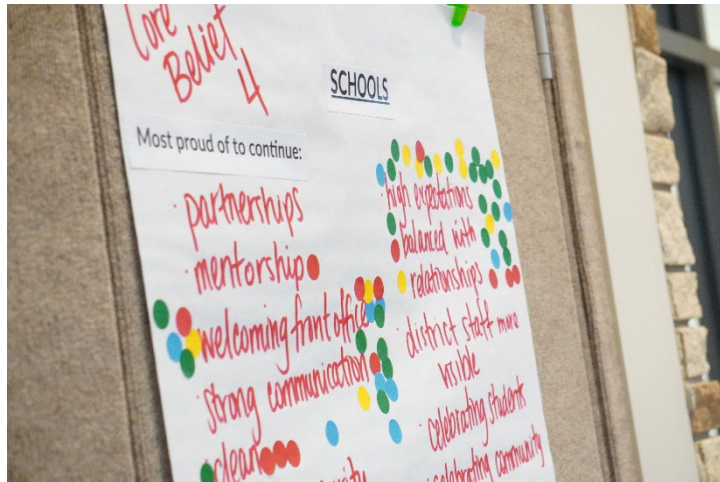 Core
Belief
4
SCHOOLS
Most proud of to continue:
· partnerships
· mentorship
· welcoming front office
· strong communication
· clean
· high expectations
balanced with
relationships
· district staff more
visible
· celebrating students
· celebrating community